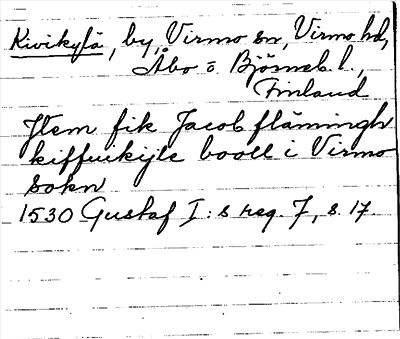 Kivikylä, by, Virmo sn, Virmo hd,
Åbo o. Björneb. l.,
Finland
Jtem fik Jacob flämingh
kiffuikyle booll i Virmo
sokn
1530 Gustaf I:s reg. 7, s. 17.